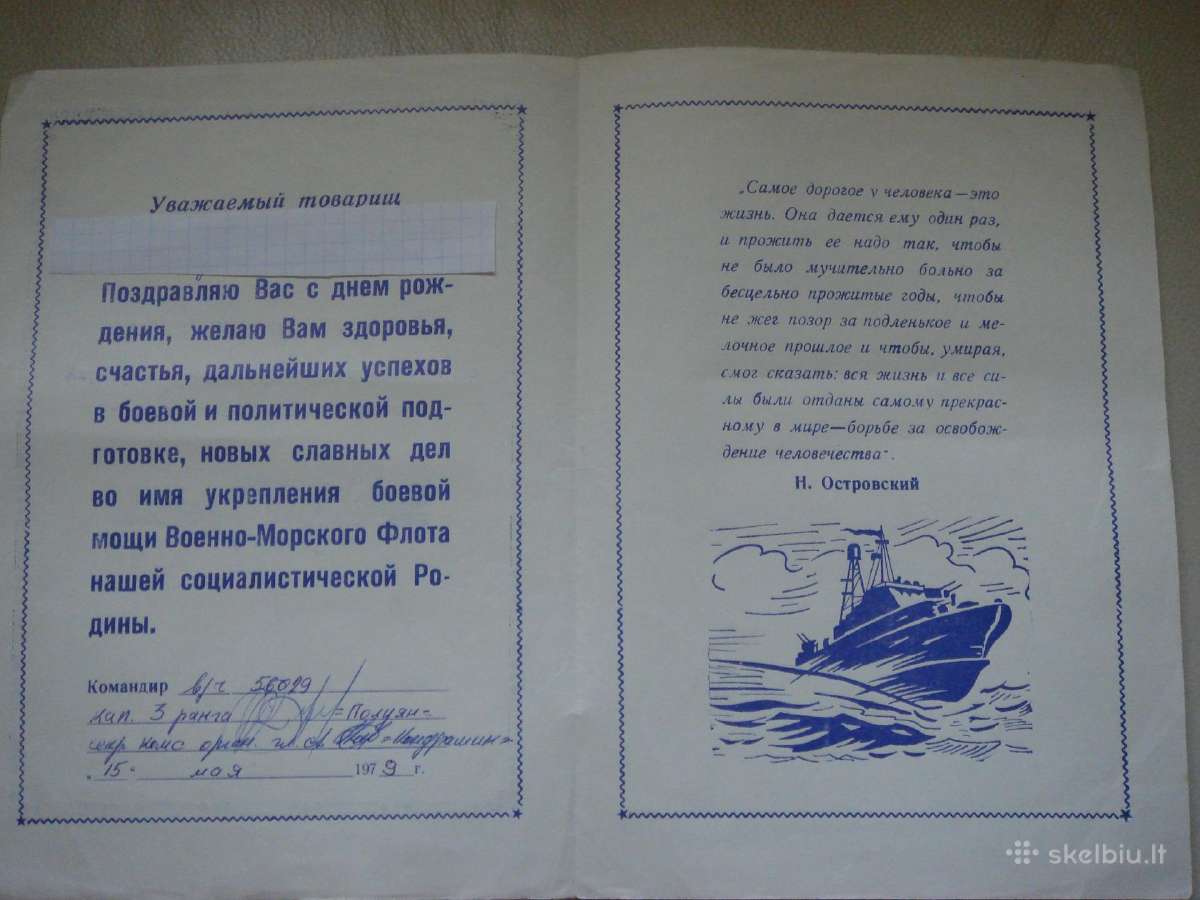 Уважаемый товарищ
Поздравляю Вас с днем рож-
дения, желаю Вам здоровья,
счастья, дальнейших успехов
в боевой и политической под-
готовке, новых славных дел
во имя укрепления боевой
мощи Военно-Морского Флота
нашей социалистической Ро-
дины.
Командир в/ч 56029
кап. 3 ранга =Полуян=
секр комс орган. гл. ст. =Кондрашин=
"15" мая 1979 г.
„Самое дорогое у человека—это
жизнь. Она дается ему один раз,
и прожить ее надо так, чтобы
не было мучительно больно за
бесцельно прожитые годы, чтобы
не жег позор за подленькое и ме-
лочное прошлое и чтобы, умирая,
смог сказать: вся жизнь и все си-
лы были отданы самому прекрас-
ному в мире—борьбе за освобож-
дение человечества".
Н. Островский
skelbiu.lt